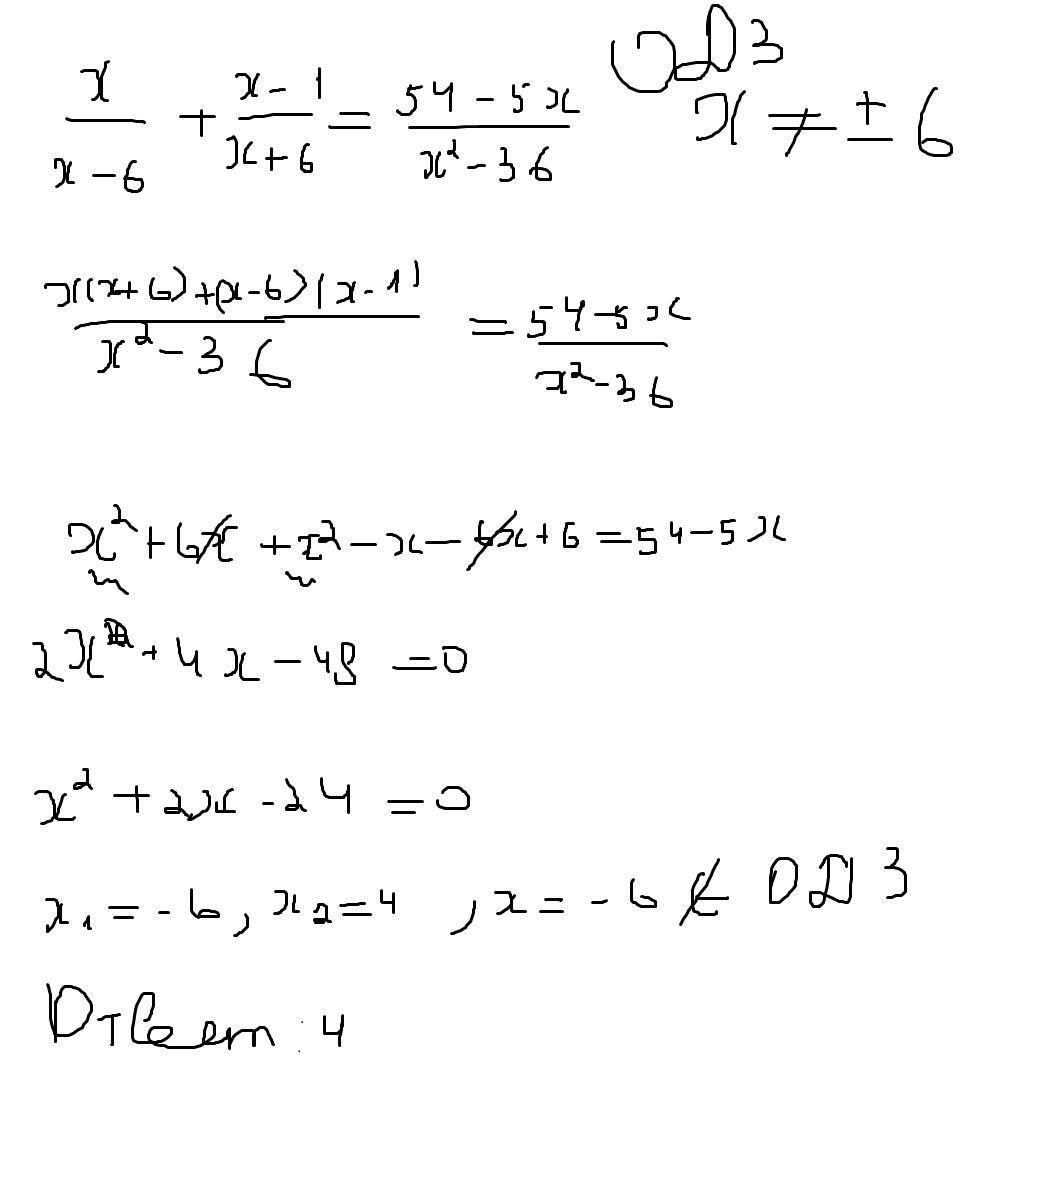 x/(x-6) + (x-1)/(x+6) = (54-5x)/(x²-36) ОДЗ
x ≠ ± 6
(x(x+6)+(x-6)(x-1))/(x²-36) = (54-5x)/(x²-36)
x²+6x+x²-x-6x+6=54-5x
2x²+4x-48=0
x²+2x-24=0
x₁=-6, x₂=4, x=-6 ∉ ОДЗ
Ответ: 4